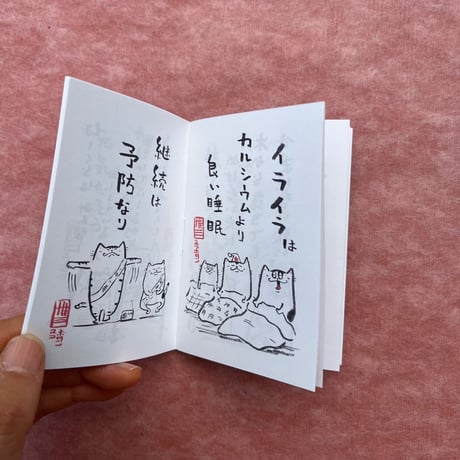 イライラは
カルシウムより
良い睡眠
継続は
予防なり